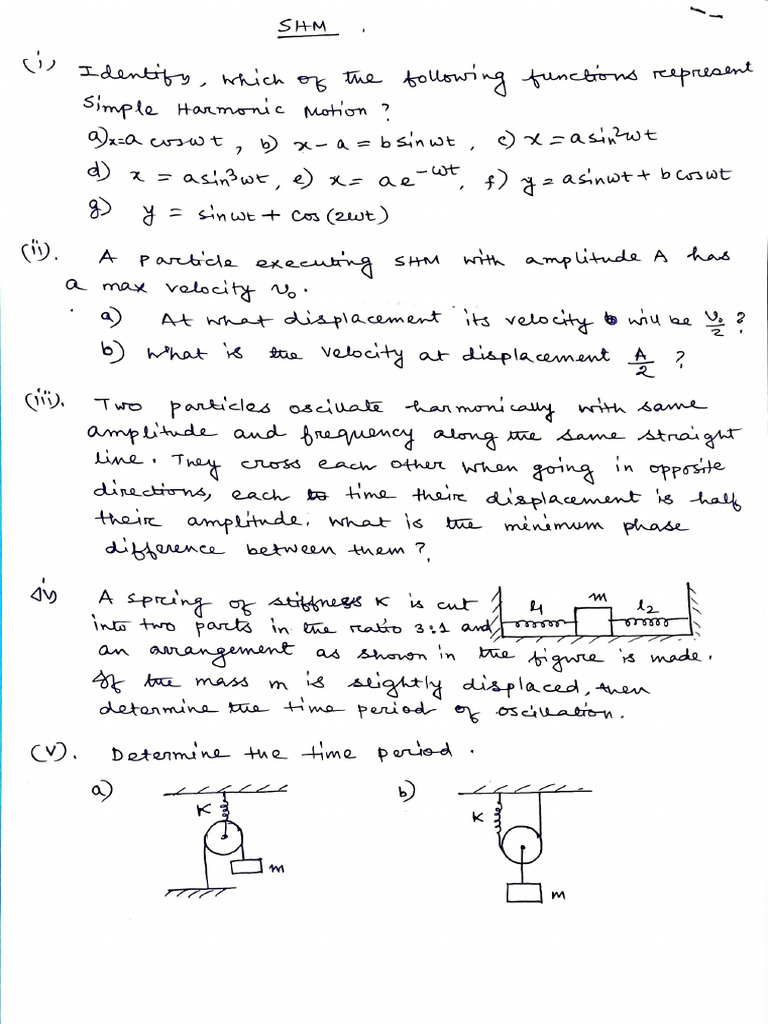 SHM.
(i) Identify, which of the following functions represent
Simple Harmonic Motion?
a) x=a cosωt, b) x-a = b sinωt, c) x = a sin²ωt
d) x = a sin³ωt, e) x = a e^{-ωt}, f) y = a sinωt + b cosωt
g) y = sinωt + cos(2ωt)
(ii). A particle executing SHM with amplitude A has
a max velocity v₀.
a) At what displacement its velocity will be v₀/2?
b) What is the velocity at displacement A/2?
(iii). Two particles oscillate harmonically with same
amplitude and frequency along the same straight
line. They cross each other when going in opposite
directions, each time their displacement is half
their amplitude. What is the minimum phase
difference between them?
iv) A spring of stiffness K is cut
into two parts in the ratio 3:1 and
an arrangement as shown in the figure is made.
If the mass m is slightly displaced, then
determine the time period of oscillation.
l₁ m l₂
(v). Determine the time period.
a) b)
K K
m m